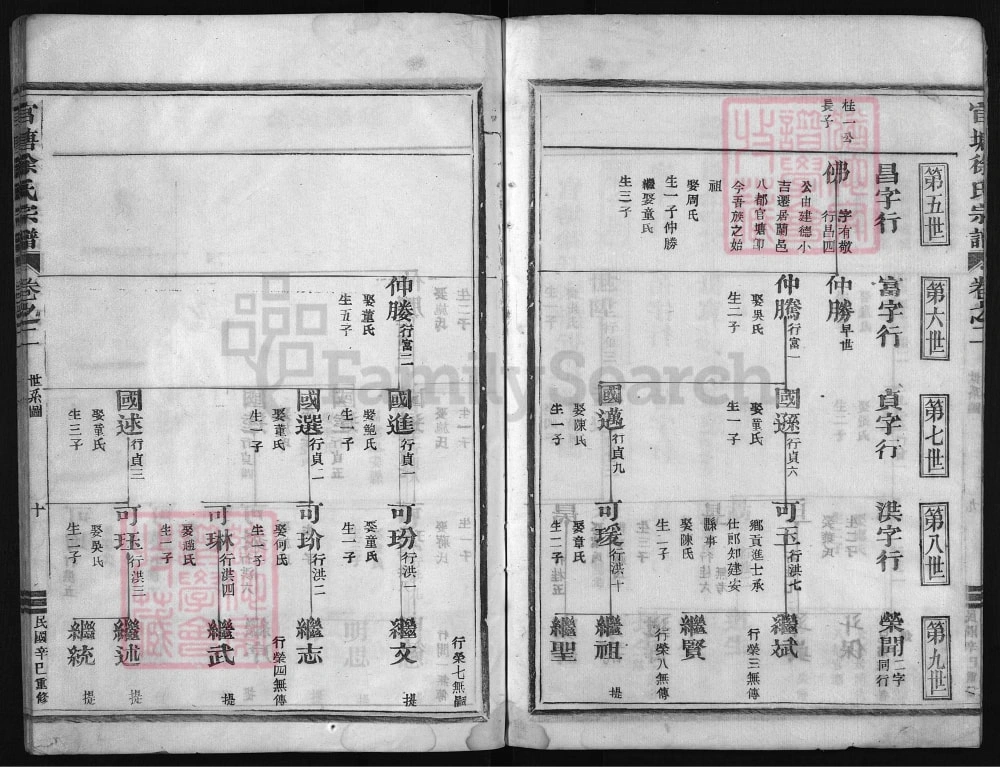 官塘徐氏宗譜
卷之一
第五世
第六世
第七世
第八世
第九世
昌字行
富字行
貞字行
洪字行
榮聞二字同行
桂一公
長子
佛
字有敬
行昌四
公由建德小
吉遷居蘭邑
八都官塘卽
今吾族之始
祖
娶周氏
生一子仲勝
繼娶童氏
生二子
仲勝早世
仲騰行富一
娶吳氏
生二子
國遜行貞六
娶童氏
生一子
可玉行洪七
鄉貢進士承
仕郎知建安
縣事
娶陳氏
生二子
繼斌
行榮三無傳
繼賢
行榮八無傳
國邁行貞九
娶陳氏
生一子
可瑗行洪十
娶章氏
生二子
繼祖
提
繼聖
仲滕行富二
娶童氏
生五子
國進行貞一
娶鮑氏
生一子
可玢行洪一
娶童氏
生一子
繼文
提
行榮七無傳
國選行貞二
娶童氏
生二子
可玠行洪二
娶何氏
生一子
繼志
行榮四無傳
可琳行洪四
娶趙氏
生一子
繼武
提
國述行貞三
娶童氏
生三子
可珏行洪三
娶吳氏
生二子
繼述
提
繼統
官塘徐氏宗譜
卷之一
世系圖
十
民國辛巳重修
FamilySearch